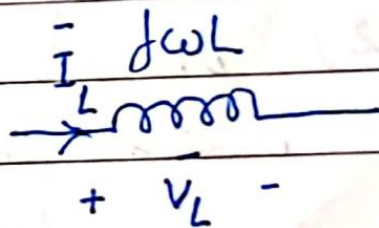 Ī_L jωL
+ V̄_L -